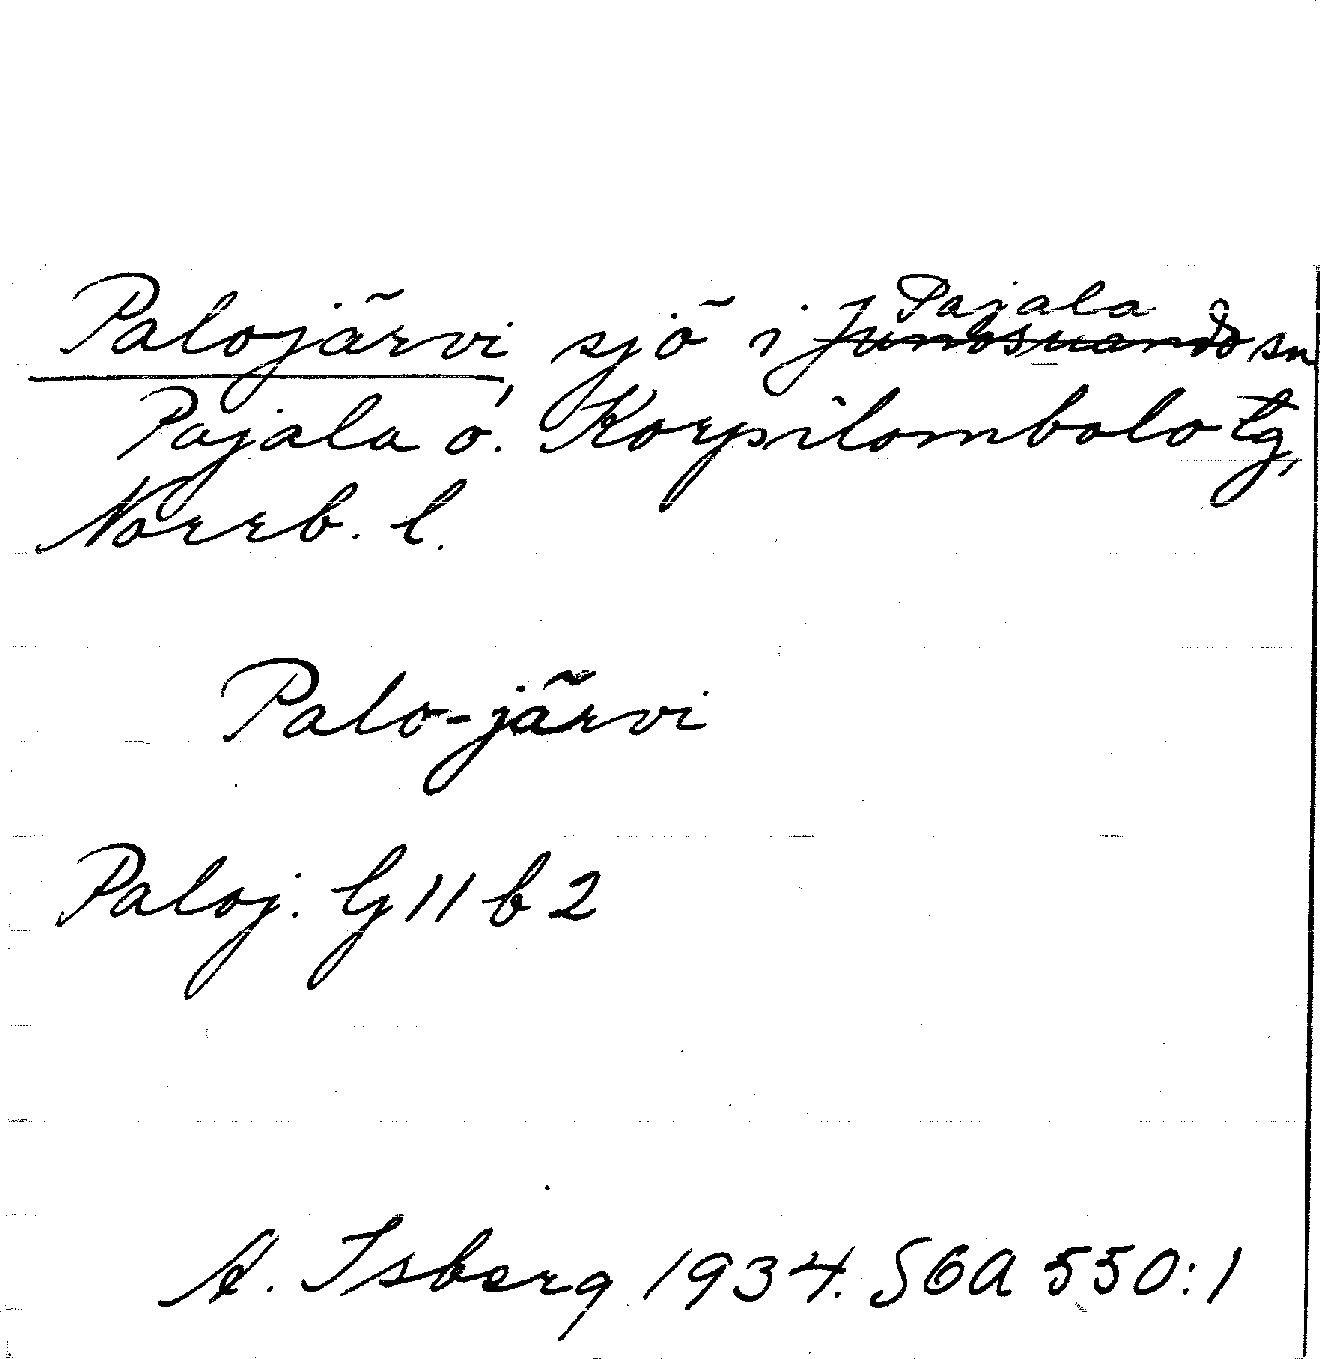 Palojärvi sjö i Junosuando Pajala sn
Pajala o. Korpilombolo tg,
Norrb. l.
Palo-järvi
Paloj. Gj 11 b 2
A. Isberg 1934. SGA 550:1